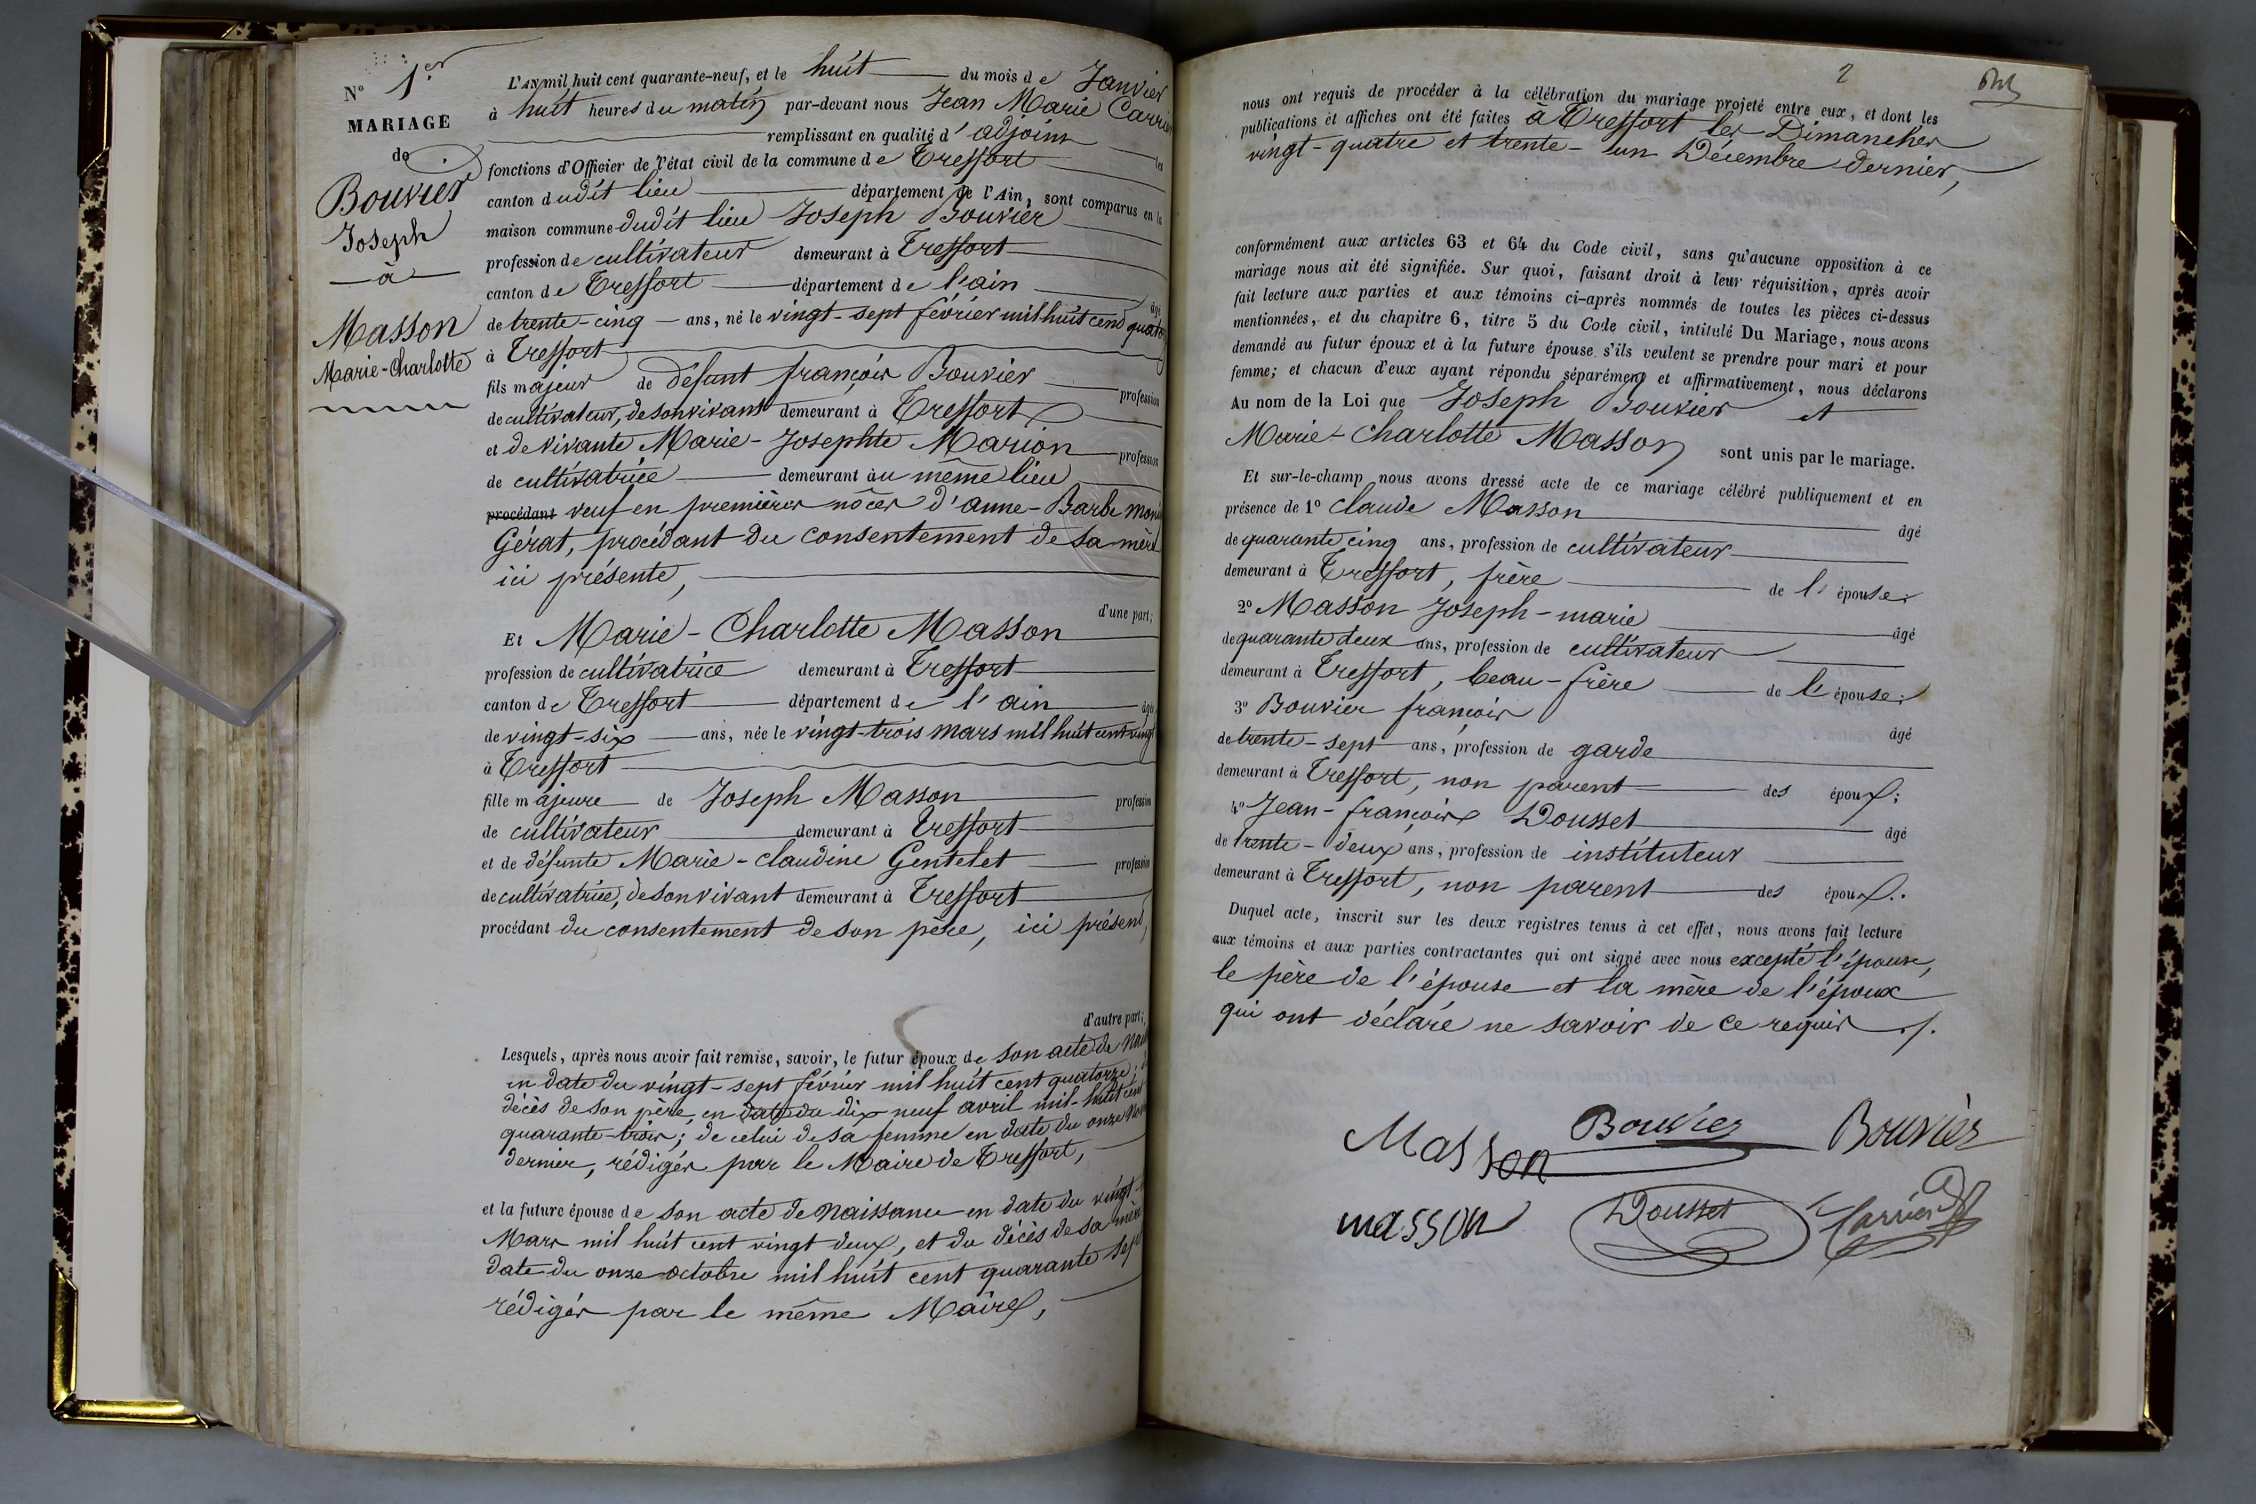 N° 1.er
MARIAGE
de
Bouvier
Joseph
à
Masson
Marie-Charlotte
L'AN mil huit cent quarante-neuf, et le huit du mois de Janvier
à huit heures du matin par-devant nous Jean Marie Carrier
remplissant en qualité d'adjoint les
fonctions d'Officier de l'état civil de la commune de Treffort
canton dudit lieu département de l'Ain, sont comparus en la
maison commune dudit lieu Joseph Bouvier
profession de cultivateur demeurant à Treffort
canton de Treffort département de l'ain âgé
de trente-cinq ans, né le vingt-sept février mil huit cent quatorze
à Treffort
fils majeur de défunt françois Bouvier profession
de cultivateur, de son vivant demeurant à Treffort
et de vivante Marie-Josephte Marion profession
de cultivatrice demeurant au même lieu
procédant veuf en premières nôces d'anne-Barbe
Gérat, procédant du consentement de sa mère
ici présente,
d'une part;
Et Marie-Charlotte Masson
profession de cultivatrice demeurant à Treffort
canton de Treffort département de l'ain âgée
de vingt-six ans, née le vingt-trois mars mil huit cent vingt
à Treffort
fille majeure de Joseph Masson profession
de cultivateur demeurant à Treffort
et de défunte Marie-claudine Gentelet profession
de cultivatrice, de son vivant demeurant à Treffort
procédant du consentement de son père, ici présent,
d'autre part;
Lesquels, après nous avoir fait remise, savoir, le futur époux de son acte de
en date du vingt-sept février mil huit cent quatorze;
décès de son père, en date du dix neuf avril mil-huit cent
quarante-trois; de celui de sa femme en date du onze
dernier, rédigés par le Maire de Treffort,
et la future épouse de son acte de naissance en date du vingt
Mars mil huit cent vingt deux, et du décès de sa mère
date du onze octobre mil huit cent quarante sept
rédigés par le même Maire,
2
nous ont requis de procéder à la célébration du mariage projeté entre eux, et dont les
publications et affiches ont été faites à Treffort les Dimanches
vingt-quatre et trente-un Décembre dernier,
conformément aux articles 63 et 64 du Code civil, sans qu'aucune opposition à ce
mariage nous ait été signifiée. Sur quoi, faisant droit à leur réquisition, après avoir
fait lecture aux parties et aux témoins ci-après nommés de toutes les pièces ci-dessus
mentionnées, et du chapitre 6, titre 5 du Code civil, intitulé Du Mariage, nous avons
demandé au futur époux et à la future épouse s'ils veulent se prendre pour mari et pour
femme; et chacun d'eux ayant répondu séparément et affirmativement, nous déclarons
Au nom de la Loi que Joseph Bouvier et
Marie-Charlotte Masson sont unis par le mariage.
Et sur-le-champ nous avons dressé acte de ce mariage célébré publiquement et en
présence de 1° claude Masson âgé
de quarante cinq ans, profession de cultivateur
demeurant à Treffort, frère de l'épouse;
2° Masson Joseph-marie âgé
de quarante deux ans, profession de cultivateur
demeurant à Treffort, beau-frère de l'épouse;
3° Bouvier françois âgé
de trente-sept ans, profession de garde
demeurant à Treffort, non parent des époux;
4° Jean-françois Dousset âgé
de trente-deux ans, profession de instituteur
demeurant à Treffort, non parent des époux.
Duquel acte, inscrit sur les deux registres tenus à cet effet, nous avons fait lecture
aux témoins et aux parties contractantes qui ont signé avec nous excepté l'épouse,
le père de l'épouse et la mère de l'époux
qui ont déclaré ne savoir de ce requis ./.
Masson Bouvier Bouvier
masson Dousset Carrier